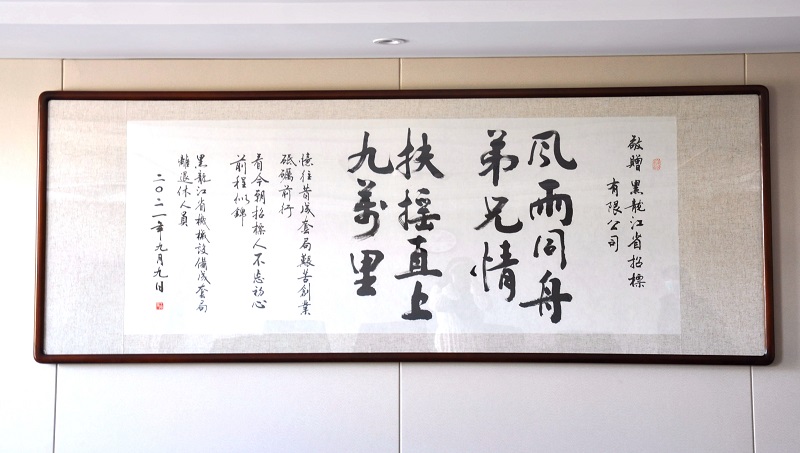 敬贈 黑龍江省招標
有限公司
風雨同舟
弟兄情
扶摇直上
九萬里
憶往昔成套局艱苦創業
砥礪前行
看今朝招標人不忘初心
前程似錦
黑龍江省機械設備成套局
離退休人員
二〇二一年九月九日